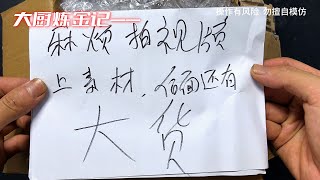 大厨炼金记
操作有风险 勿擅自模仿
麻烦拍视频
上素材，后面还有
大货